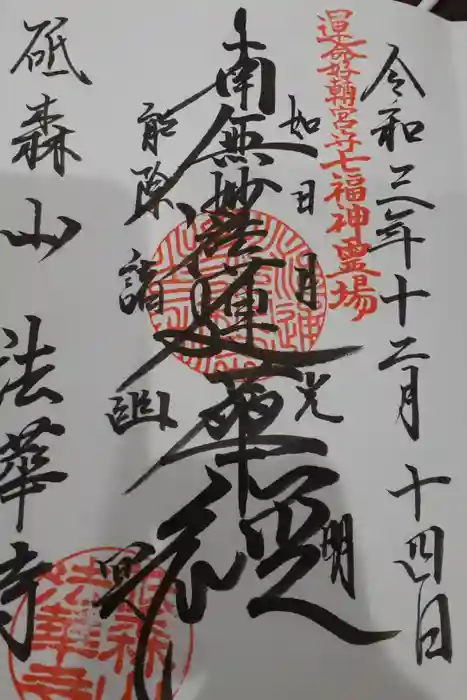 令和三年十二月十四日
運命好轉宮守七福神霊場
如日月光明
南無妙法蓮華經
能除諸幽冥
砥森山 法華寺
砥森山
法華寺